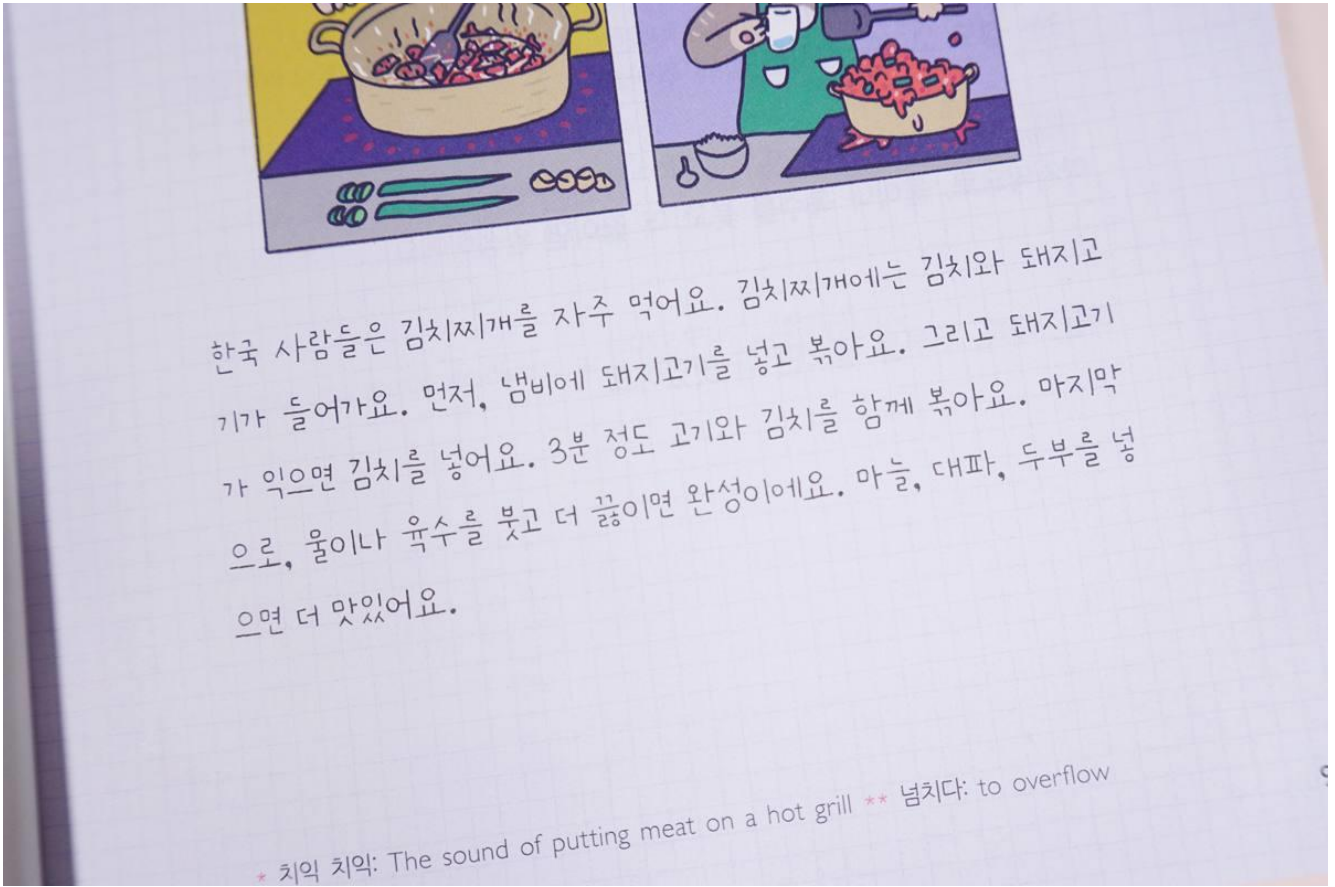 한국 사람들은 김치찌개를 자주 먹어요. 김치찌개에는 김치와 돼지고
기가 들어가요. 먼저, 냄비에 돼지고기를 넣고 볶아요. 그리고 돼지고기
가 익으면 김치를 넣어요. 3분 정도 고기와 김치를 함께 볶아요. 마지막
으로, 물이나 육수를 붓고 더 끓이면 완성이에요. 마늘, 대파, 두부를 넣
으면 더 맛있어요.
* 치익 치익: The sound of putting meat on a hot grill ** 넘치다: to overflow